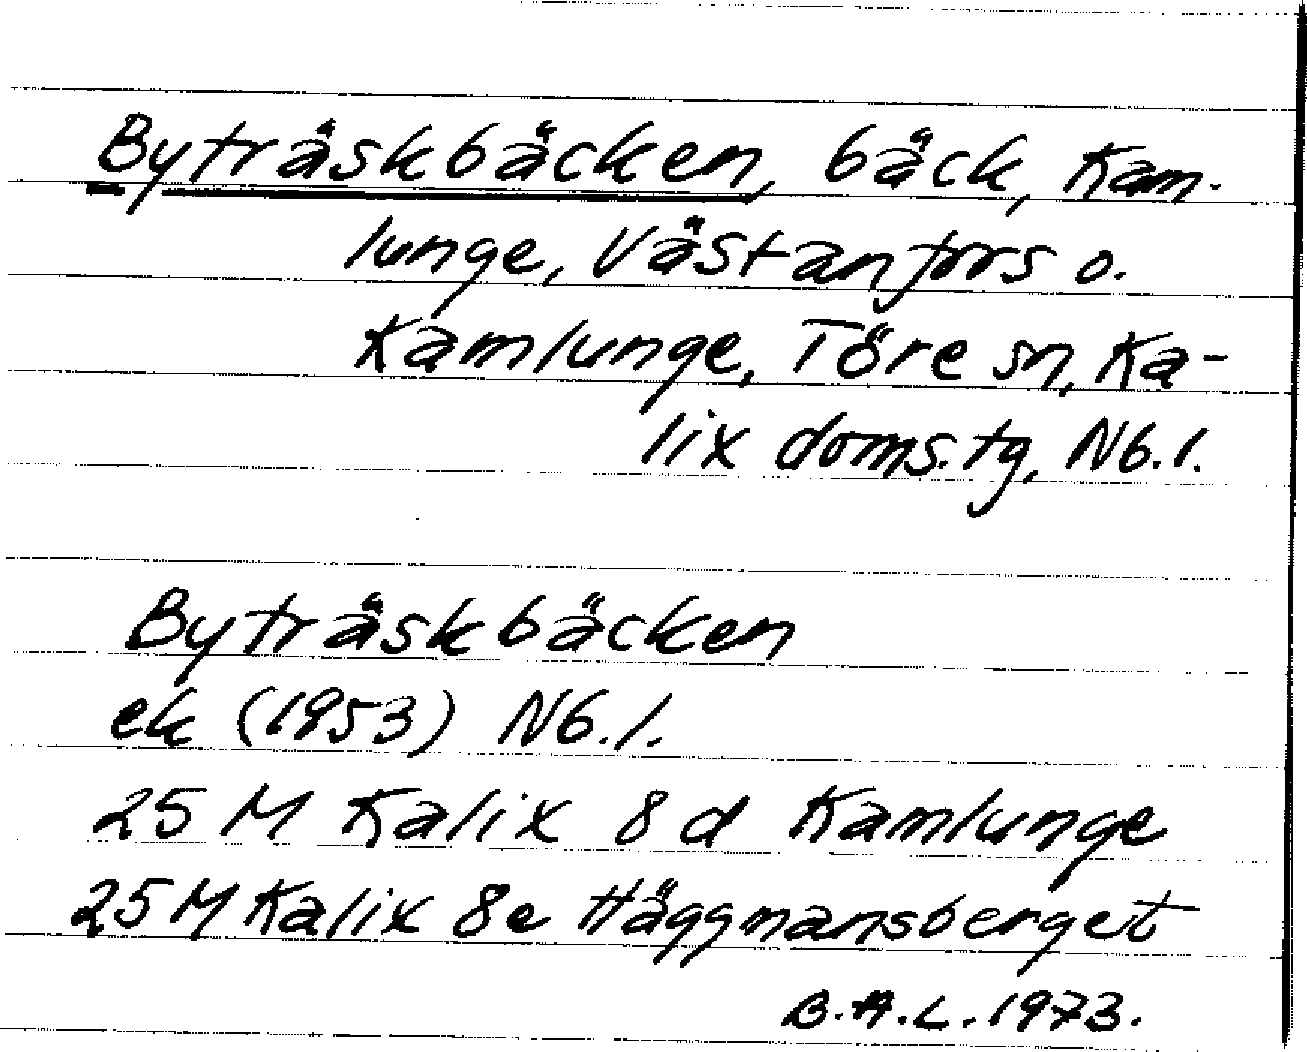 Byträskbäcken, bäck, Kam-
lunge, Västanfors o.
Kamlunge, Töre sn, Ka-
lix doms.tg, Nb.l.
Byträskbäcken
ek (1953) Nb.l.
25 M Kalix 8 d Kamlunge
25 M Kalix 8e Häggmansberget
B.A.L. 1973.